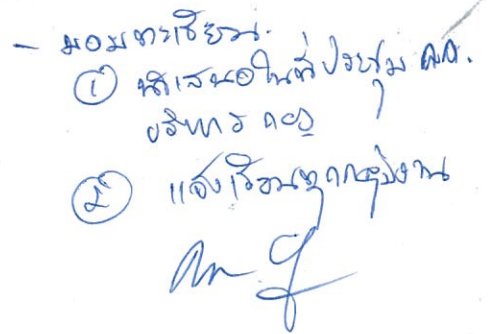 - มอบทะเบียน
① นำเสนอในที่ประชุม คก.
บริหาร
② แจ้งเวียนทุกกลุ่มงาน